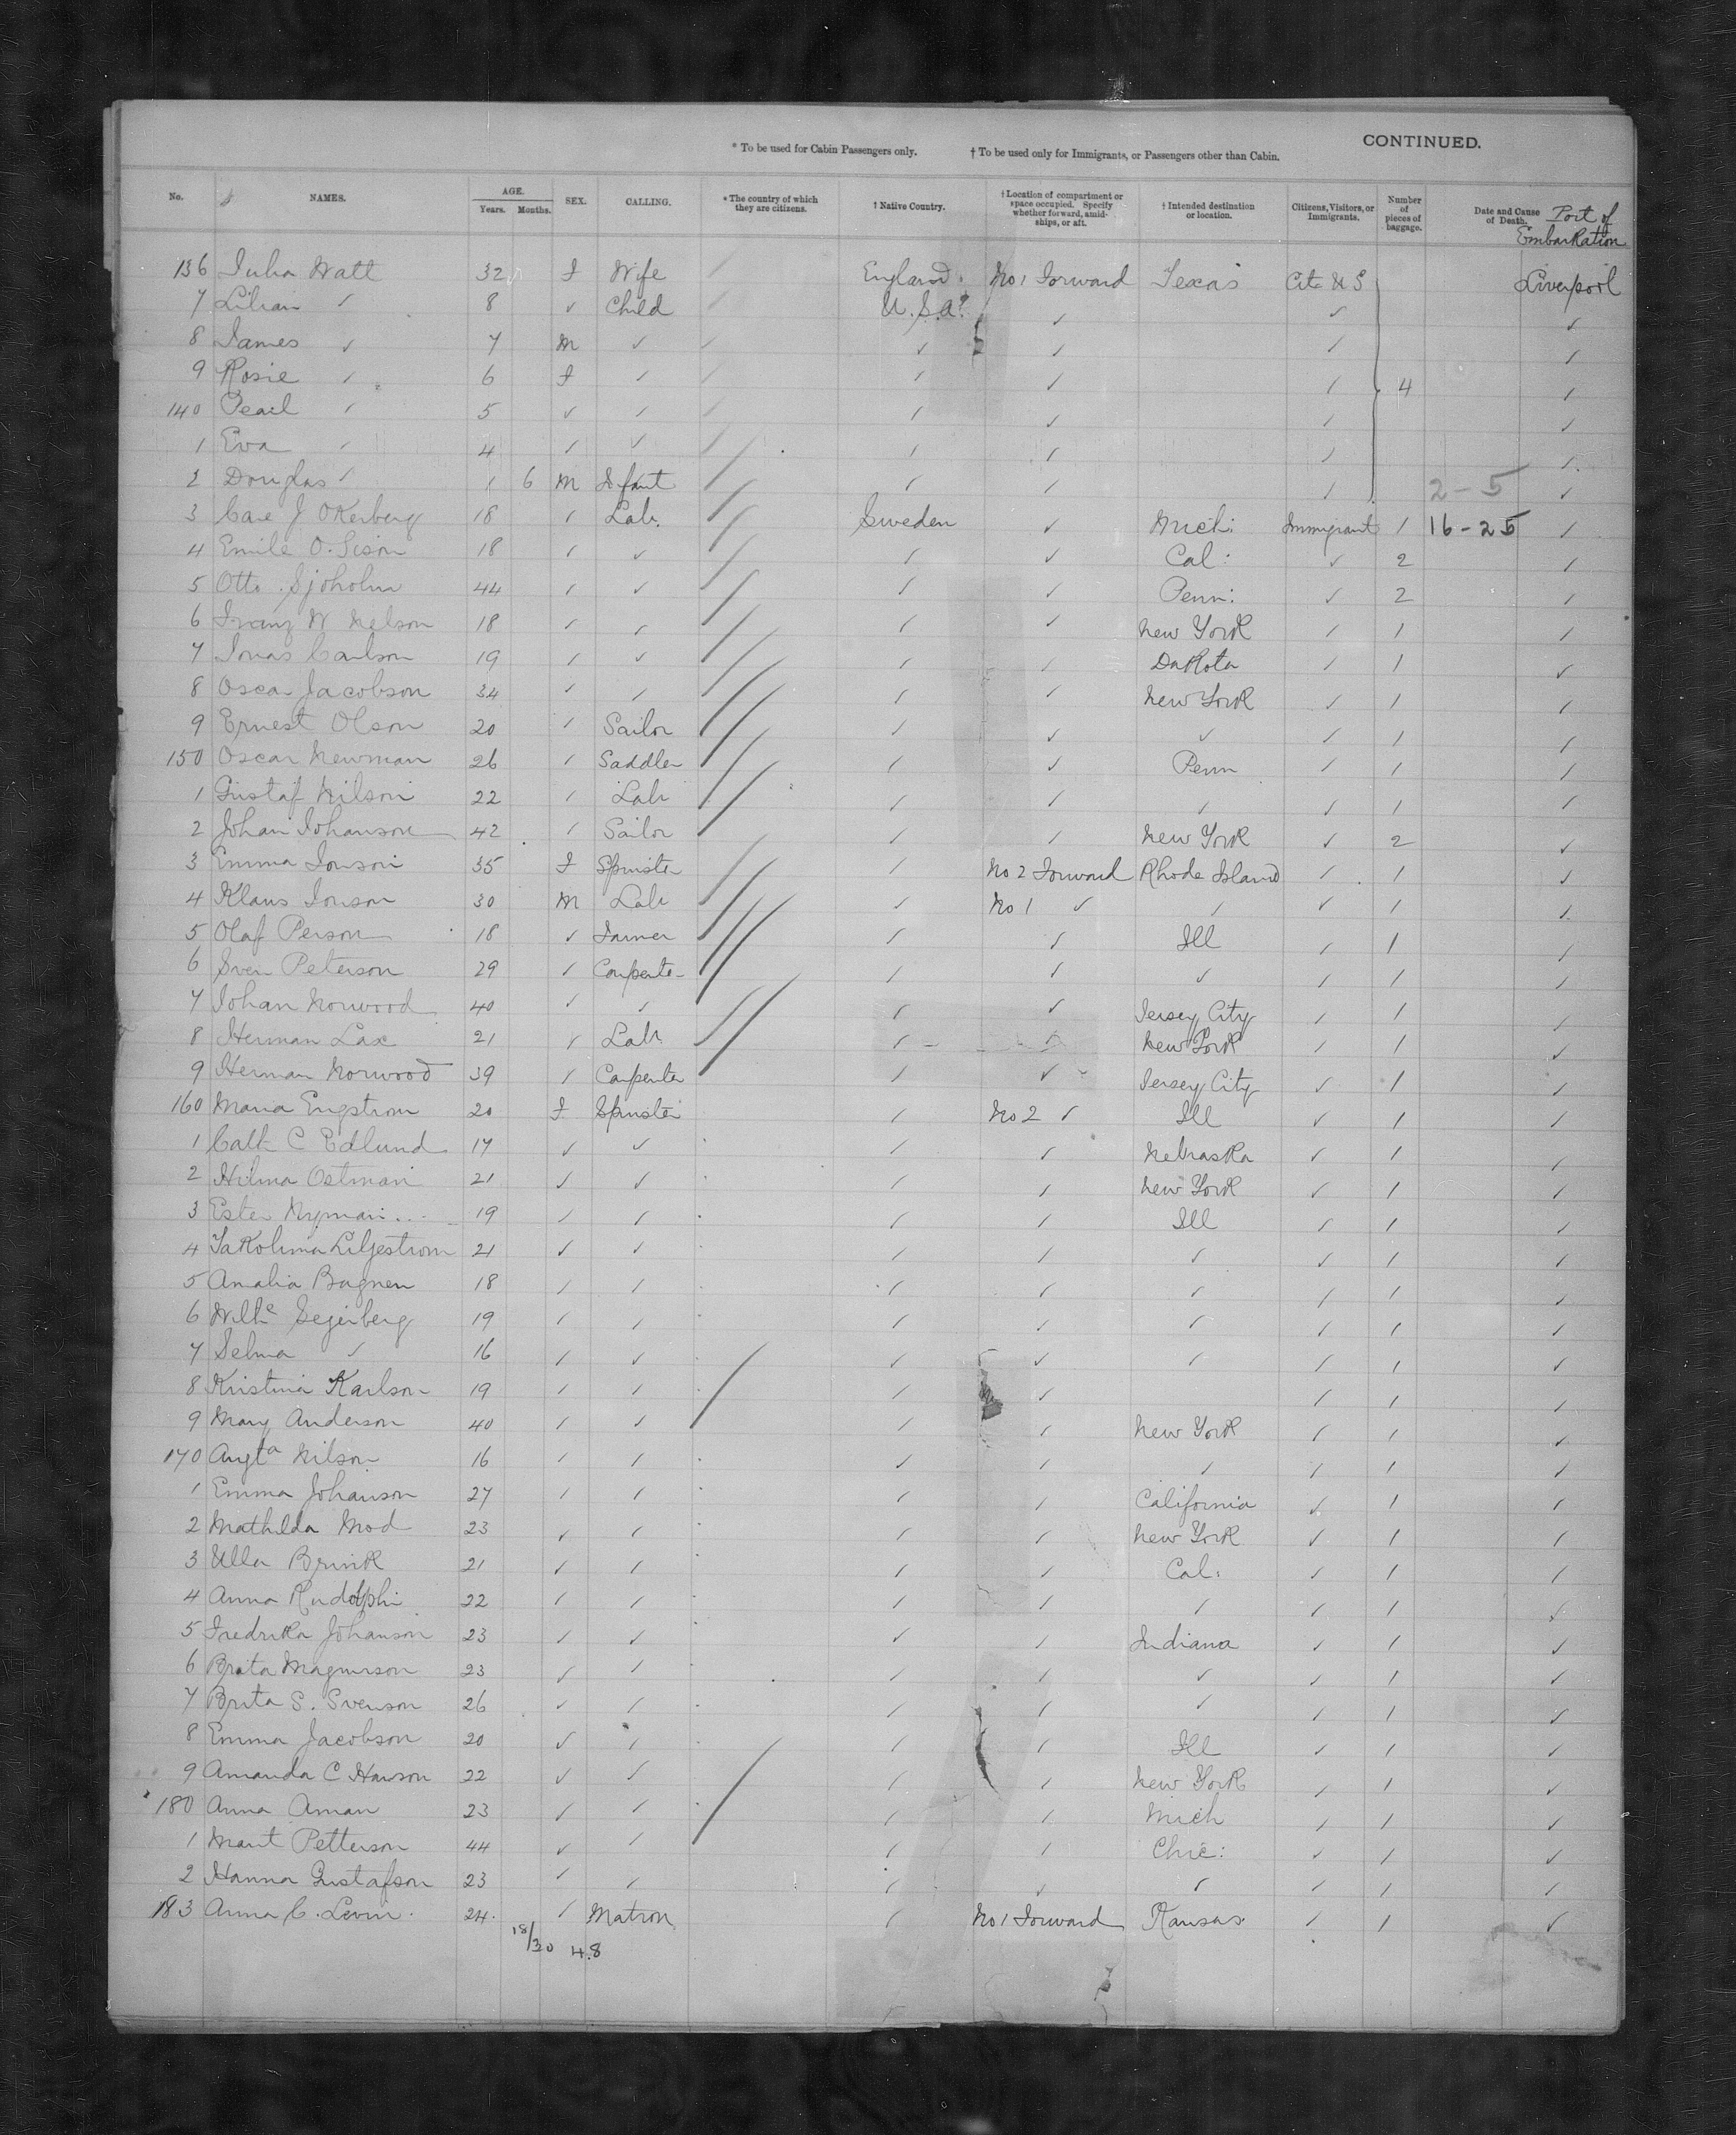 CONTINUED.
* To be used for Cabin Passengers only. † To be used only for Immigrants, or Passengers other than Cabin.
No. NAMES. AGE. Years. Months. SEX. CALLING. * The country of which they are citizens. † Native Country. † Location of compartment or space occupied. Specify whether forward, amidships, or aft. † Intended destination or location. Citizens, Visitors, or Immigrants. Number of pieces of baggage. Date and Cause of Death. Port of Embarkation
136 Julia Watt 32 F Wife England. No 1 Forward Texas Cit U S Liverpool
7 Lilian ✓ 8 ✓ Child U.S.A. ✓ ✓ ✓
8 James ✓ 7 M ✓ ✓ ✓ ✓ ✓
9 Rosie ✓ 6 F ✓ ✓ ✓ ✓ 4 ✓
140 Pearl ✓ 5 ✓ ✓ ✓ ✓ ✓ ✓
1 Eva ✓ 4 ✓ ✓ ✓ ✓ ✓ ✓
2 Douglas ✓ 1 6 M Infant ✓ ✓ ✓ 2-5 ✓
3 J OKerberg 18 ✓ Lab. Sweden ✓ Mich: Immigrant 1 16-25 ✓
4 Emile O. 18 ✓ ✓ ✓ ✓ Cal: ✓ 2 ✓
5 Otto Sjoholm 44 ✓ ✓ ✓ ✓ Penn: ✓ 2 ✓
6 Franz W Nelson 18 ✓ ✓ ✓ ✓ New York ✓ 1 ✓
7 Jonas Carlson 19 ✓ ✓ ✓ ✓ Dakota ✓ 1 ✓
8 Oscar Jacobson 34 ✓ ✓ ✓ ✓ New York ✓ 1 ✓
9 Ernest Olson 20 ✓ Sailor ✓ ✓ ✓ ✓ 1 ✓
150 Oscar Newman 26 ✓ Saddler ✓ ✓ Penn ✓ 1 ✓
1 Gustaf Nilson 22 ✓ Lab ✓ ✓ ✓ ✓ 1 ✓
2 Johan Johanson 42 ✓ Sailor ✓ ✓ New York ✓ 2 ✓
3 Emma Jonson 35 F Spinster ✓ No 2 Forward Rhode Island ✓ 1 ✓
4 Klaus Jonson 30 M Lab ✓ No 1 ✓ ✓ ✓ 1 ✓
5 Olaf Person 18 ✓ Farmer ✓ ✓ Ill ✓ 1 ✓
6 Sven Peterson 29 ✓ Carpenter ✓ ✓ ✓ ✓ 1 ✓
7 Johan Norwood 40 ✓ ✓ ✓ ✓ Jersey City ✓ 1 ✓
8 Herman Lax 21 ✓ Lab ✓ ✓ New York ✓ 1 ✓
9 Herman Norwood 39 ✓ Carpenter ✓ ✓ Jersey City ✓ 1 ✓
160 Maria Engstrom 20 F Spinster ✓ No 2 ✓ Ill ✓ 1 ✓
1 Cath C Edlund 17 ✓ ✓ ✓ ✓ Nebraska ✓ 1 ✓
2 Hilma Ostman 21 ✓ ✓ ✓ ✓ New York ✓ 1 ✓
3 Ester Nyman 19 ✓ ✓ ✓ ✓ Ill ✓ 1 ✓
4 Jakolina Liljestrom 21 ✓ ✓ ✓ ✓ ✓ ✓ 1 ✓
5 Amalia Bagnen 18 ✓ ✓ ✓ ✓ ✓ ✓ 1 ✓
6 Wilh^e Segerberg 19 ✓ ✓ ✓ ✓ ✓ ✓ 1 ✓
7 Selma ✓ 16 ✓ ✓ ✓ ✓ ✓ ✓ 1 ✓
8 Kristina Karlson 19 ✓ ✓ ✓ ✓ ✓ 1 ✓
9 Mary Anderson 40 ✓ ✓ ✓ ✓ New York ✓ 1 ✓
170 Augta Nilson 16 ✓ ✓ ✓ ✓ ✓ ✓ 1 ✓
1 Emma Johanson 27 ✓ ✓ ✓ ✓ California ✓ 1 ✓
2 Mathilda Mod 23 ✓ ✓ ✓ ✓ New York ✓ 1 ✓
3 Ulla Brink 21 ✓ ✓ ✓ ✓ Cal: ✓ 1 ✓
4 Anna Rudolphi 22 ✓ ✓ ✓ ✓ ✓ ✓ 1 ✓
5 Fredrika Johanson 23 ✓ ✓ ✓ ✓ Indiana ✓ 1 ✓
6 Brita Magnusson 23 ✓ ✓ ✓ ✓ ✓ ✓ 1 ✓
7 Brita S. Svenson 26 ✓ ✓ ✓ ✓ ✓ ✓ 1 ✓
8 Emma Jacobson 20 ✓ ✓ ✓ ✓ Ill ✓ 1 ✓
9 Amanda C Hanson 22 ✓ ✓ ✓ ✓ New York ✓ 1 ✓
180 Anna Aman 23 ✓ ✓ ✓ ✓ Mich ✓ 1 ✓
1 Marit Petterson 44 ✓ ✓ ✓ ✓ Chic: ✓ 1 ✓
2 Hanna Gustafson 23 ✓ ✓ ✓ ✓ ✓ ✓ 1 ✓
183 Anna C. Levin 24 ✓ Matron ✓ No 1 Forward Kansas ✓ 1 ✓
18/30 48